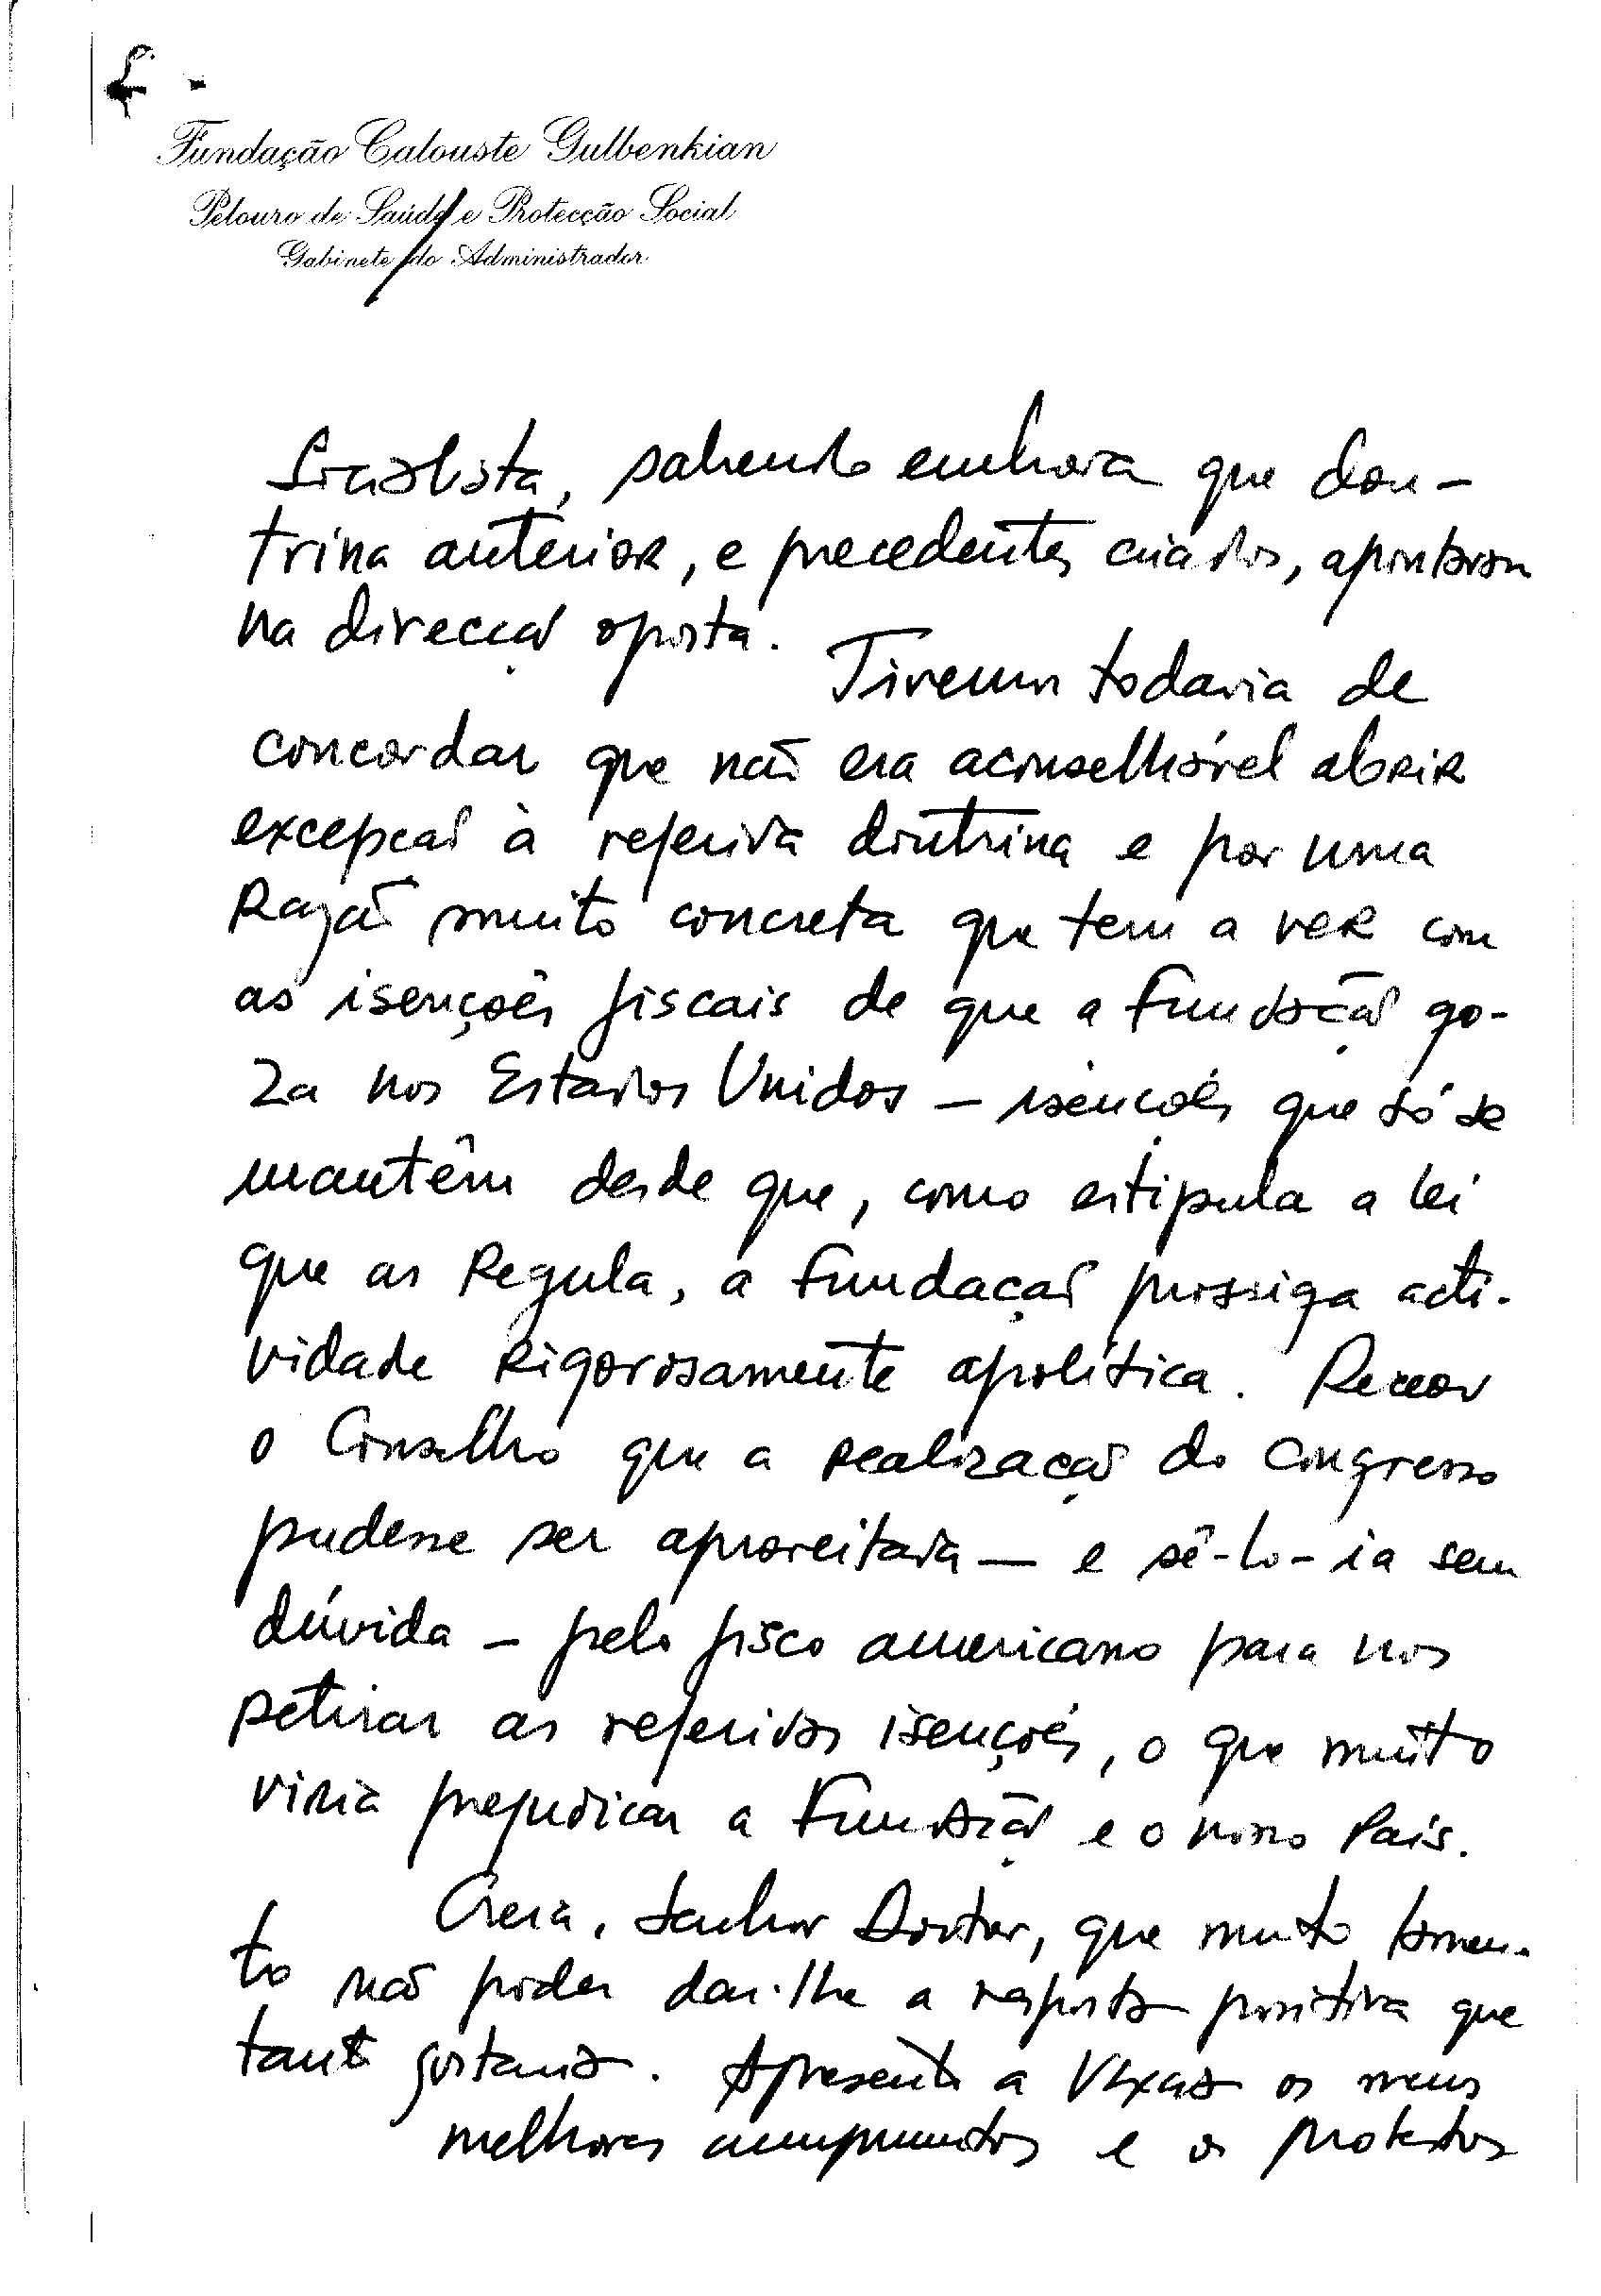 Fundação Calouste Gulbenkian
Pelouro de Saúde e Protecção Social
Gabinete do Administrador
Socialista, sabendo embora que dou-
trina anterior, e precedentes criados, apontavam
na direcção oposta. Tivemos todavia de
concordar que não era aconselhável abrir
excepção à referida doutrina e por uma
Razão muito concreta que tem a ver com
as isenções fiscais de que a Fundação go-
za nos Estados Unidos — isenções que só se
mantêm desde que, como estipula a lei
que as Regula, a Fundação prossiga acti-
vidade Rigorosamente apolítica. Receou
o Conselho que a Realização do Congresso
pudesse ser aproveitada — e sê-lo-ia sem
dúvida — pelo fisco americano para nos
Retirar as referidas isenções, o que muito
viria prejudicar a Fundação e o nosso País.
Creia, Senhor Doutor, que muito lamen-
to não poder dar-lhe a resposta positiva que
tanto gostaria. Apresento a V. Exa os meus
melhores cumprimentos e os protestos